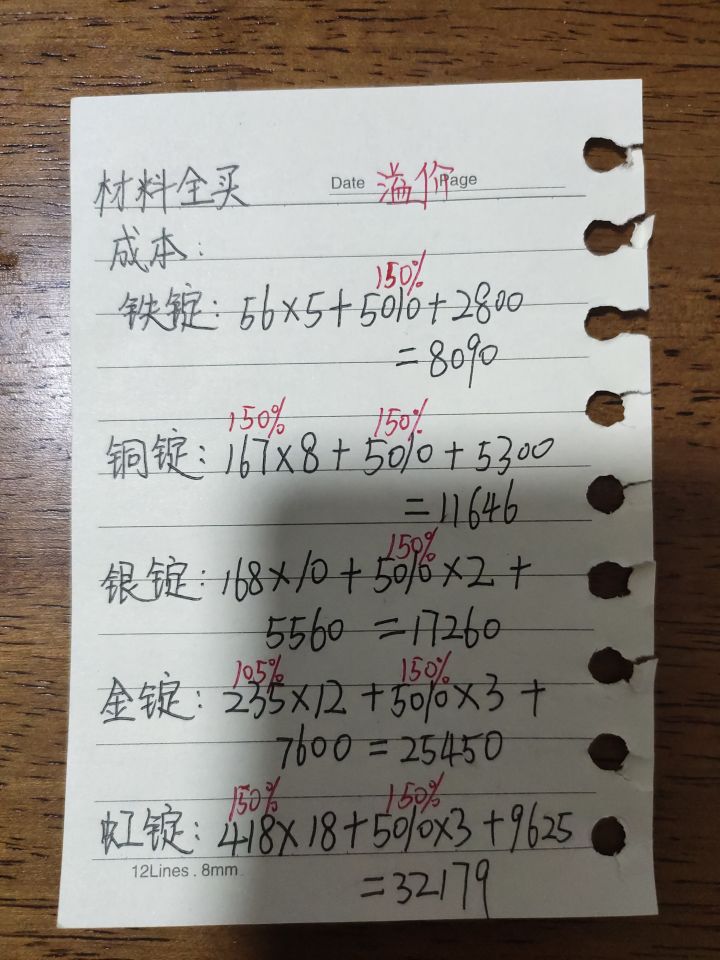 Date 溢价 Page
材料全买
成本:
150%
铁锭: 56×5+5010+2800
=8090
150% 150%
铜锭: 167×8+5010+5300
=11646
150%
银锭: 168×10+5010×2+
5560 =17260
105% 150%
金锭: 235×12+5010×3+
7600=25450
150% 150%
虹锭: 418×18+5010×3+9625
12Lines.8mm
=32179